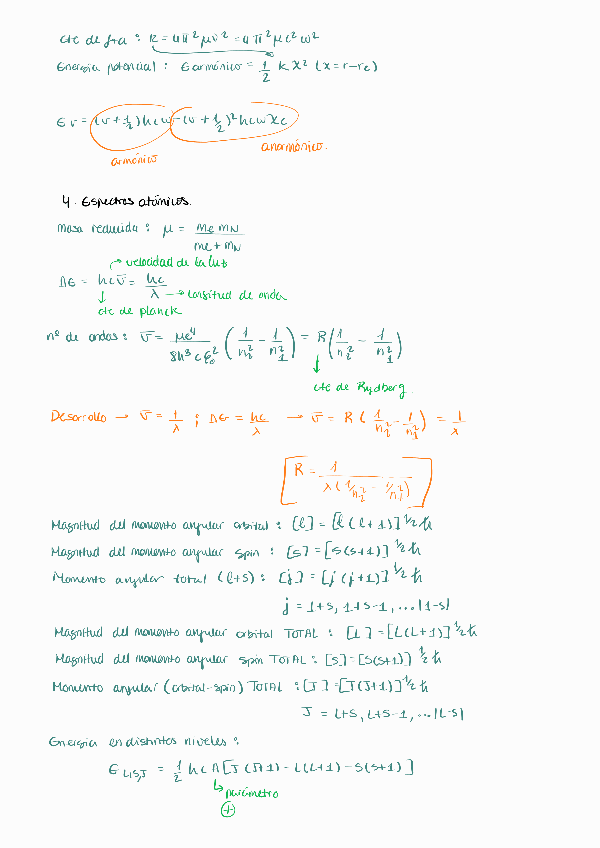 cte de fza : K = 4π²μν² = 4π²μc²ω²
Energía potencial : E armónico = 1/2 k x² (x = r - re)
Ev = (v + 1/2) hcω - (v + 1/2)² hcω Xe
armónico anarmónico.
4. Espectros atómicos.
masa reducida : μ = me mN / me + mN
→ velocidad de la luz
ΔE = hcν̄ = hc/λ → longitud de onda
↓ cte de planck
nº de ondas : ν̄ = μe⁴ / 8h³cε₀² (1/n₂² - 1/n₁²) = R(1/n₂² - 1/n₁²)
↓ cte de Rydberg.
Desarrollo → ν̄ = 1/λ ; ΔE = hc/λ → ν̄ = R (1/n₂² - 1/n₁²) = 1/λ
[R = 1 / λ(1/n₂² - 1/n₁²)]
Magnitud del momento angular orbital : [l] = [l(l+1)]^1/2 ħ
Magnitud del momento angular spin : [s] = [s(s+1)]^1/2 ħ
Momento angular total (l+s) : [j] = [j(j+1)]^1/2 ħ
j = l+s, l+s-1, ... |l-s|
Magnitud del momento angular orbital TOTAL : [L] = [L(L+1)]^1/2 ħ
Magnitud del momento angular spin TOTAL : [S] = [S(S+1)]^1/2 ħ
Momento angular (orbital-spin) TOTAL : [J] = [J(J+1)]^1/2 ħ
J = L+S, L+S-1, ... |L-S|
Energía en distintos niveles :
E L,S,J = 1/2 hcA[J(J+1) - L(L+1) - S(S+1)]
↳ parámetro
+